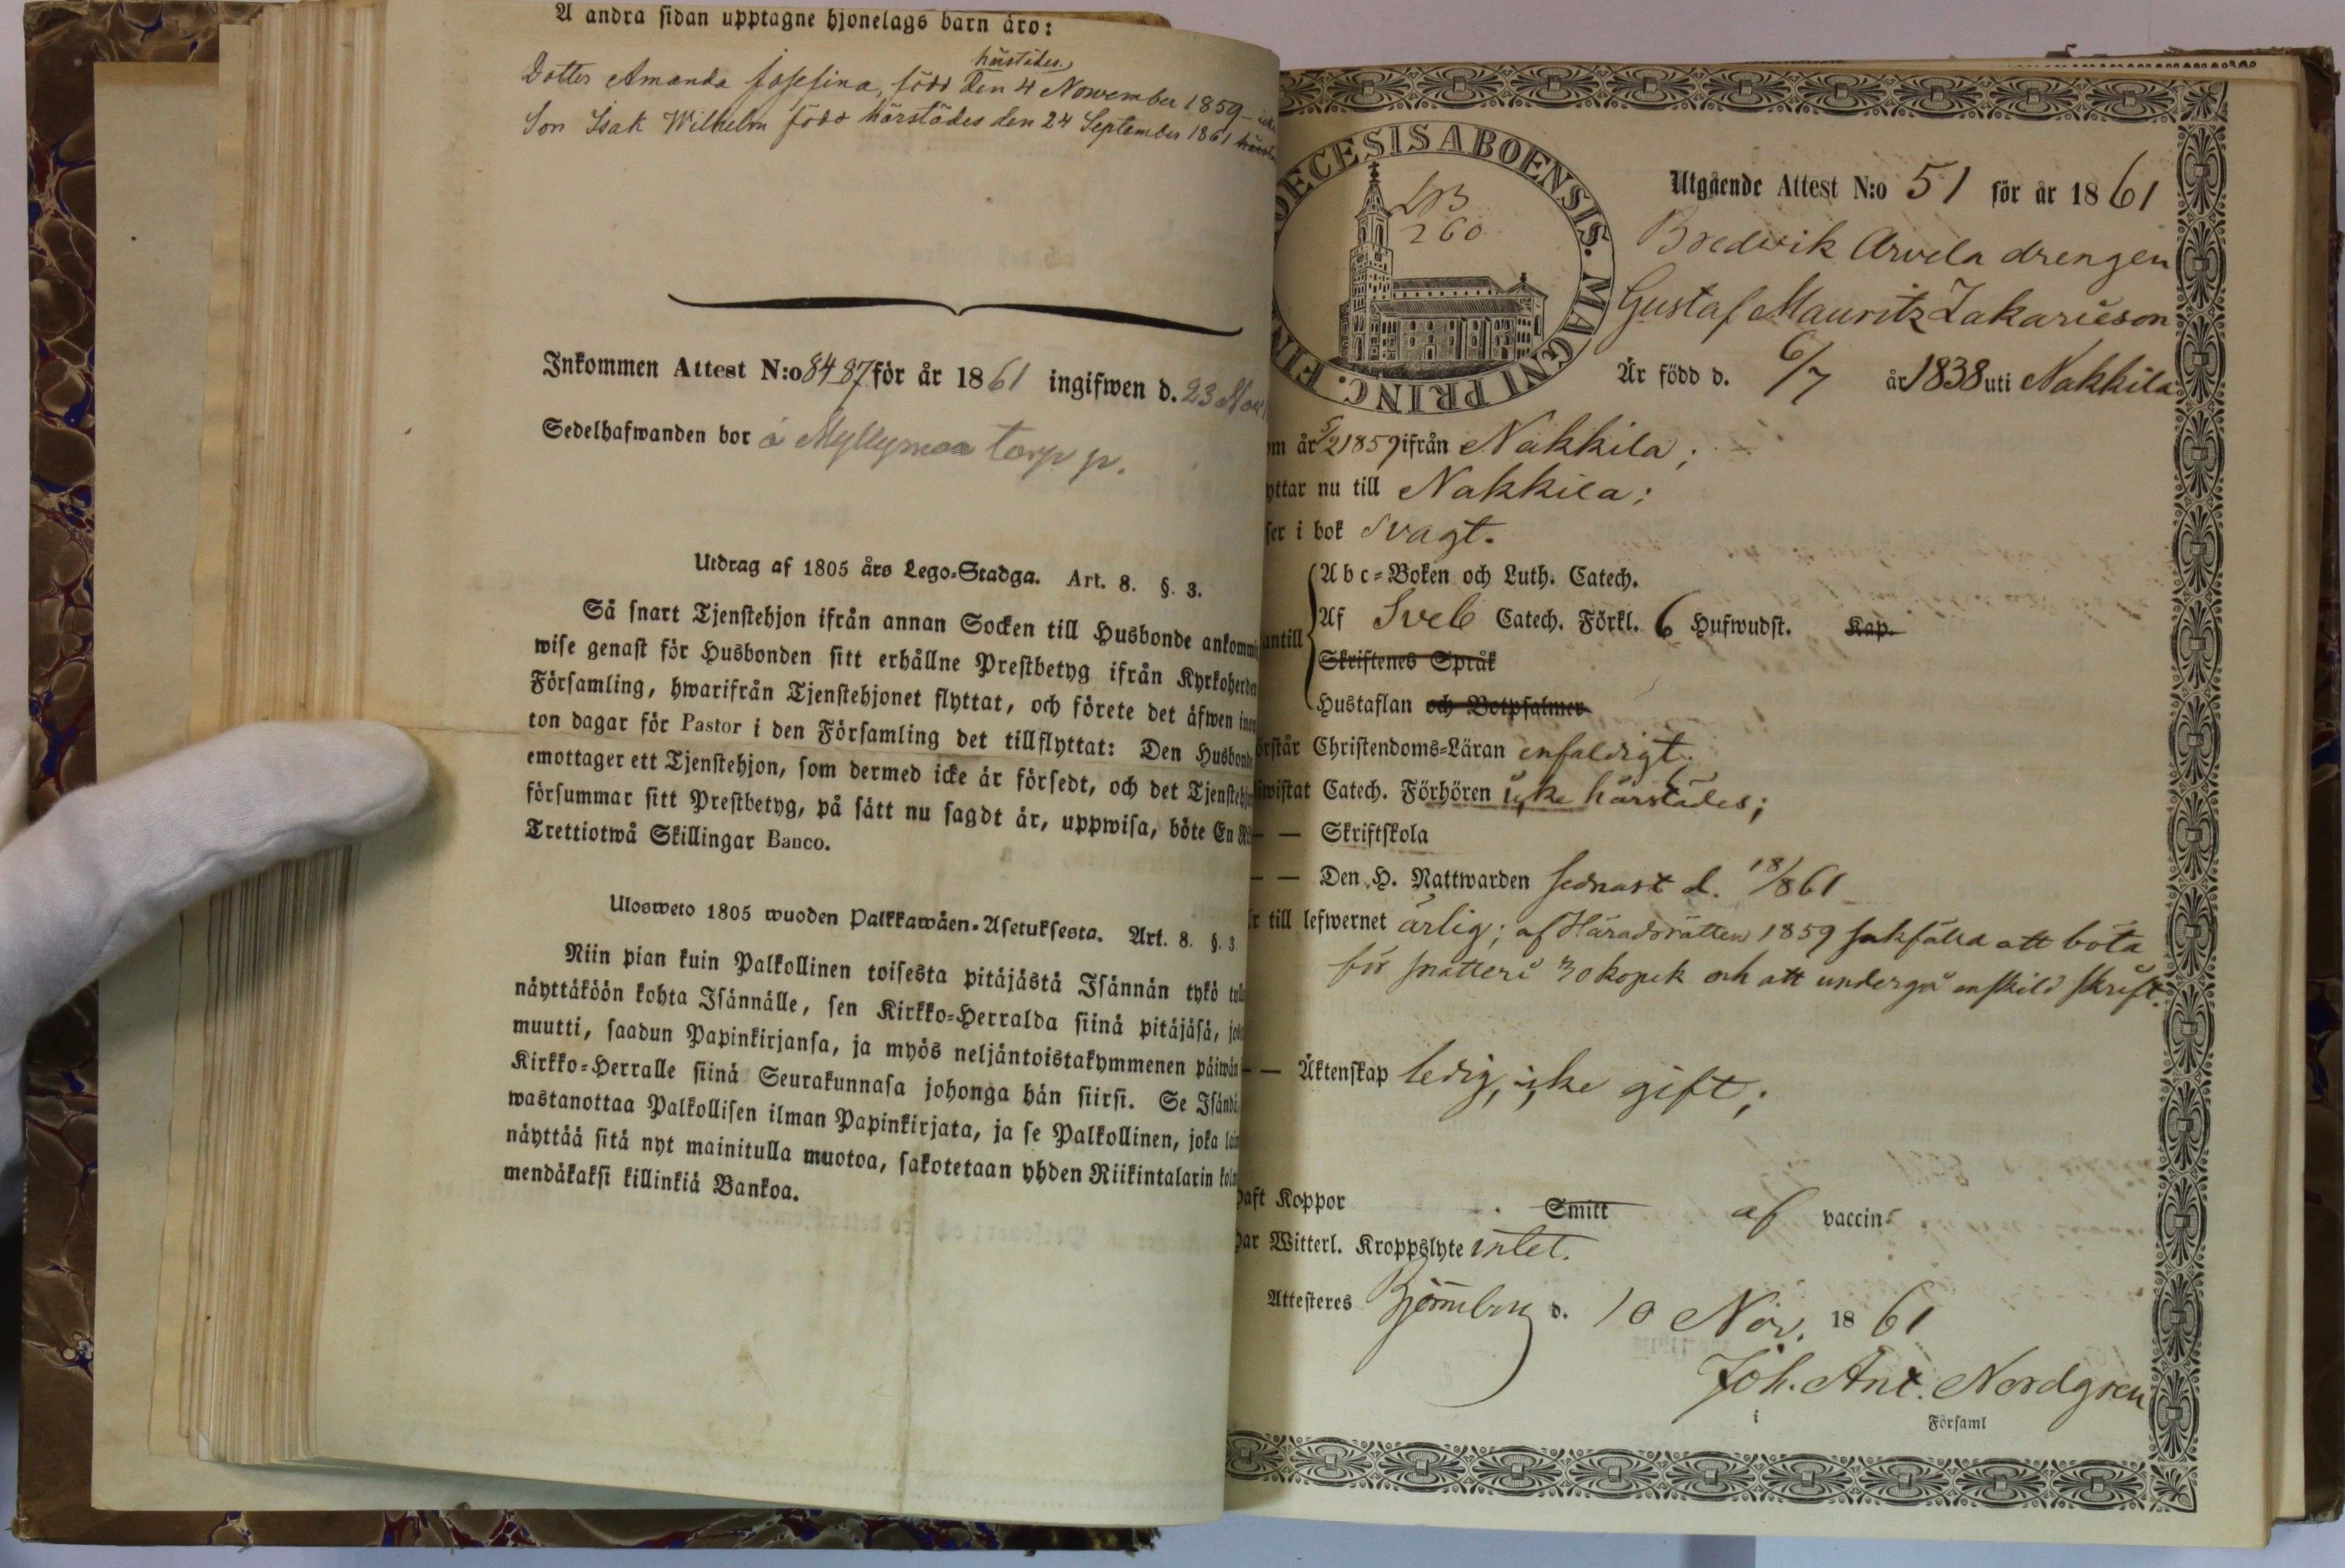 Å andra sidan upptagne hjonelags barn äro:
härstädes
Dotter Amanda Josefina, född den 4 November 1859
Son Isak Wilhelm född härstädes den 24 September 1861
Inkommen Attest N:o 84-87 för år 1861 ingifwen d. 23 Nov
Sedelhafwanden bor å Myllymaa torp
Utdrag af 1805 års Lego-Stadga. Art. 8. §. 3.
Så snart Tjenstehjon ifrån annan Socken till Husbonde ankommi
wise genast för Husbonden sitt erhållne Prestbetyg ifrån Kyrkoherden
Församling, hwarifrån Tjenstehjonet flyttat, och förete det äfwen inom
ton dagar för Pastor i den Församling det tillflyttat: Den Husbonde
emottager ett Tjenstehjon, som dermed icke är försedt, och det Tjenstehjon
försummar sitt Prestbetyg, på sätt nu sagdt är, uppwisa, böte En Ri
Trettiotwå Skillingar Banco.
Ulosweto 1805 wuoden Palkkawäen-Asetuksesta. Art. 8. §. 3
Niin pian kuin Palkollinen toisesta pitäjästä Isännän tykö tule
näyttäköön kohta Isännälle, sen Kirkko-Herralda siinä pitäjäsä, jo
muutti, saadun Papinkirjansa, ja myös neljäntoistakymmenen päiwän
Kirkko-Herralle siinä Seurakunnasa johonga hän siirsi. Se Isändä
wastanottaa Palkollisen ilman Papinkirjata, ja se Palkollinen, joka
näyttää sitä nyt mainitulla muotoa, sakotetaan yhden Riikintalarin kol
mendäkaksi killinkiä Bankoa.
OECESIS ABOENSIS. MAGNI PRINC. FIN
260
Utgående Attest N:o 51 för år 1861
Bredwik Arvela drengen
Gustaf Mauritz Zakarieson
Är född d. 6/7 år 1838 uti Nakkila
om år 5/2 1859 ifrån Nakkila;
yttar nu till Nakkila;
ser i bok svagt.
Abc-Boken och Luth. Catech.
antill Af Sveb Catech. Förkl. 6 Hufwudst. Kap.
Skriftenes Språk
Hustaflan och Botpsalmer
örstår Christendoms-Läran enfaldigt.
wistat Catech. Förhören icke härstädes;
— — Skriftskola
— — Den H. Nattwarden sednast d. 18/8 61
r till lefwernet ärlig; af Häradsrätten 1859 sakfälld att böta
för snatteri 30 kopek och att undergå enskild skrift.
— — Äktenskap ledig, icke gift;
haft Koppor Smitt af vaccin
har Witterl. Kroppslyte intet.
Attesteres Björneborg d. 10 Nov. 1861
Joh. Ant. Nordgren
i Församl